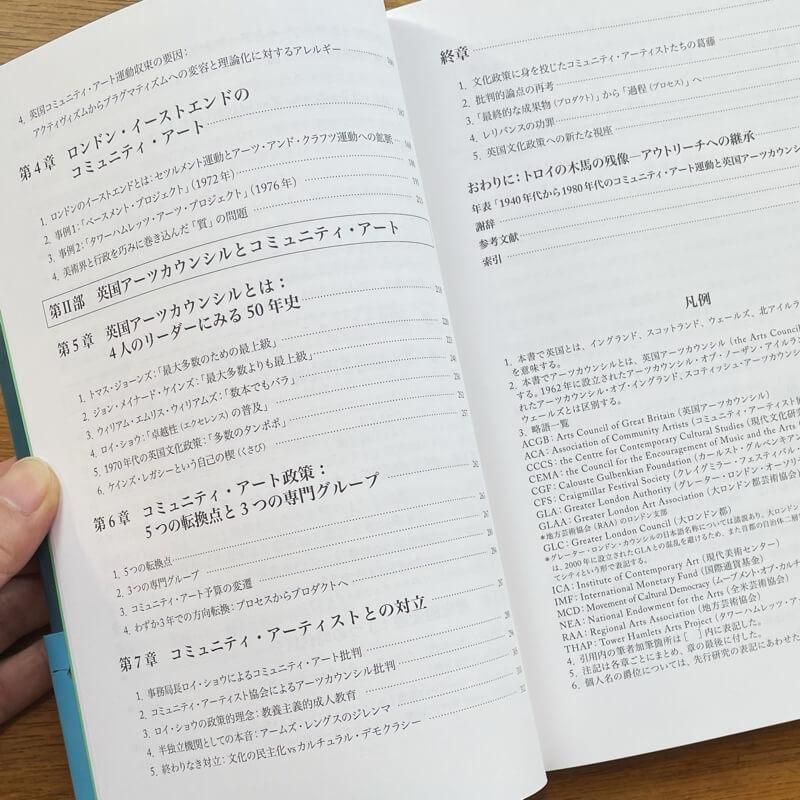 4. 英国コミュニティ・アート運動収束の要因:
アクティヴィズムからプラグマティズムへの変容と理論化に対するアレルギー
第4章 ロンドン・イーストエンドの
コミュニティ・アート
1. ロンドンのイーストエンドとは:セツルメント運動とアーツ・アンド・クラフツ運動への鉱脈
2. 事例1:「ベースメント・プロジェクト」(1972年)
3. 事例2:「タワーハムレッツ・アーツ・プロジェクト」(1976年)
4. 美術界と行政を巧みに巻き込んだ「質」の問題
第II部 英国アーツカウンシルとコミュニティ・アート
第5章 英国アーツカウンシルとは:
4人のリーダーにみる50年史
1. トマス・ジョーンズ:「最大多数のための最上級」
2. ジョン・メイナード・ケインズ:「最大多数よりも最上級」
3. ウィリアム・エムリス・ウィリアムズ:「数本でもバラ」
4. ロイ・ショウ:「卓越性(エクセレンス)の普及」
5. 1970年代の英国文化政策:「多数のタンポポ」
6. ケインズ・レガシーという自己の楔(くさび)
第6章 コミュニティ・アート政策:
5つの転換点と3つの専門グループ
1. 5つの転換点
2. 3つの専門グループ
3. コミュニティ・アート予算の変遷
4. わずか3年での方向転換:プロセスからプロダクトへ
第7章 コミュニティ・アーティストとの対立
1. 事務局長ロイ・ショウによるコミュニティ・アート批判
2. コミュニティ・アーティスト協会によるアーツカウンシル批判
3. ロイ・ショウの政策的理念:教養主義的成人教育
4. 半独立機関としての本音:アームズ・レングスのジレンマ
5. 終わりなき対立:文化の民主化vsカルチュラル・デモクラシー
終章
1. 文化政策に身を投じたコミュニティ・アーティストたちの葛藤
2. 批判的論点の再考
3.「最終的な成果物(プロダクト)」から「過程(プロセス)」へ
4. レリバンスの功罪
5. 英国文化政策への新たな視座
おわりに:トロイの木馬の残像―アウトリーチへの継承
年表「1940年代から1980年代のコミュニティ・アート運動と英国アーツカウンシ
謝辞
参考文献
索引
凡例
1. 本書で英国とは、イングランド、スコットランド、ウェールズ、北アイルラ
を意味する。
2. 本書でアーツカウンシルとは、英国アーツカウンシル(the Arts Council
する。1962年に設立されたアーツカウンシル・オブ・ノーザン・アイルラン
れたアーツカウンシル・オブ・イングランド、スコティッシュ・アーツカウンシ
ウェールズとは区別する。
3. 略語一覧
ACGB: Arts Council of Great Britain(英国アーツカウンシル)
ACA: Association of Community Artists(コミュニティ・アーティスト協
CCCS: the Centre for Contemporary Cultural Studies(現代文化研究
CEMA: the Council for the Encouragement of Music and the Arts(
CGF: Calouste Gulbenkian Foundation(カールスト・グルベンキアン
CFS: Craigmillar Festival Society(クレイグミラー・フェスティバル・
GLA: Greater London Authority(グレーター・ロンドン・オーソリ
GLAA: Greater London Art Association(大ロンドン都芸術協会)
*地方芸術協会(RAA)のロンドン支部
GLC: Greater London Council(大ロンドン都)
*グレーター・ロンドン・カウンシルの日本語名称については諸説あり、大ロンドン
は、2000年に設立されたGLAとの混乱を避けるため、また首都の自治体二層
てシティという形で表記する。
ICA: Institute of Contemporary Art(現代美術センター)
IMF: International Monetary Fund(国際通貨基金)
MCD: Movement of Cultural Democracy(ムーブメント・オブ・カル
NEA: National Endowment for the Arts(全米芸術協会)
RAA: Regional Arts Association(地方芸術協会)
THAP: Tower Hamlets Arts Project(タワーハムレッツ・アー
4. 引用内の筆者加筆箇所は[ ]内に表記した。
5. 注記は各章ごとにまとめ、章の最後に付した。
6. 個人名の爵位については、先行研究の表記にあわせた